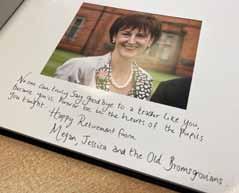 No one can truly say goodbye to a teacher like you,
because you'll forever be in the hearts of the pupils
you taught.
Happy Retirement from
Megan, Jessica and the Old Bromsgrovians